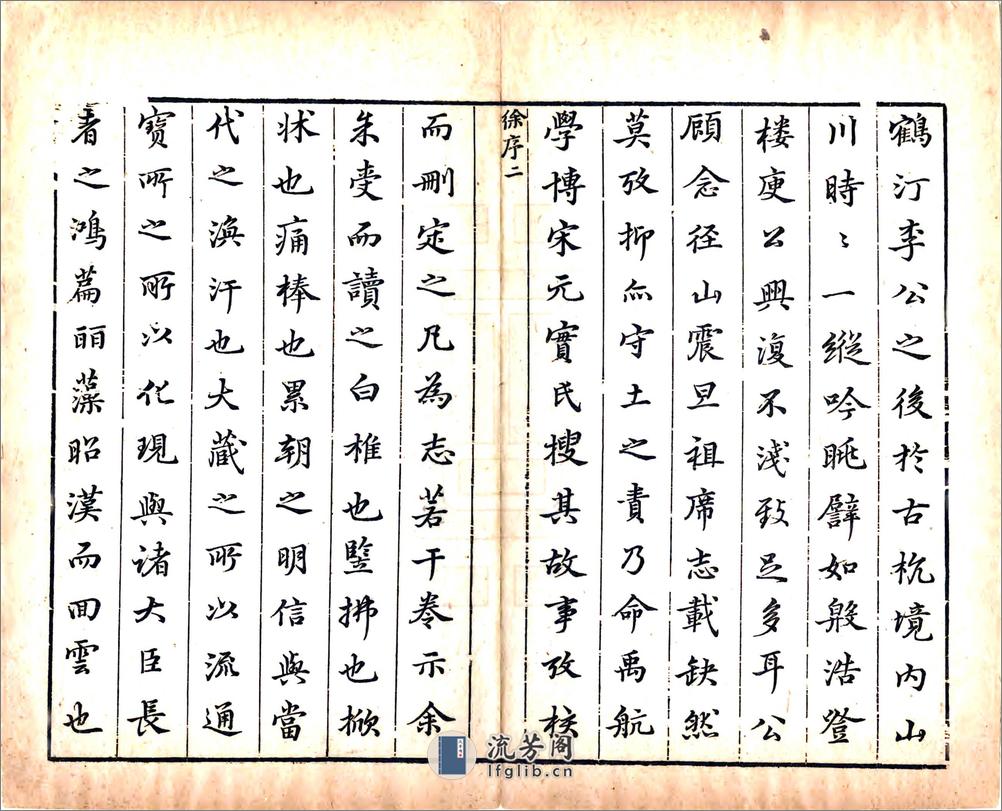 鶴汀李公之後於古杭境内山
川時〻一縱吟眺譬如殷浩登
楼庾公興復不淺致足多耳公
顧念径山震旦祖席志載缺然
莫攷抑亦守土之責乃命禹航
學博宋元實氏搜其故事攷核
徐序二
而刪定之凡為志若干卷示余
余受而讀之白椎也豎拂也掀
牀也痛棒也累朝之明信與當
代之渙汗也大藏之所以流通
寶所之所以化現與諸大臣長
者之鴻篇丽藻昭漢而回雲也
流芳阁
lfglib.cn